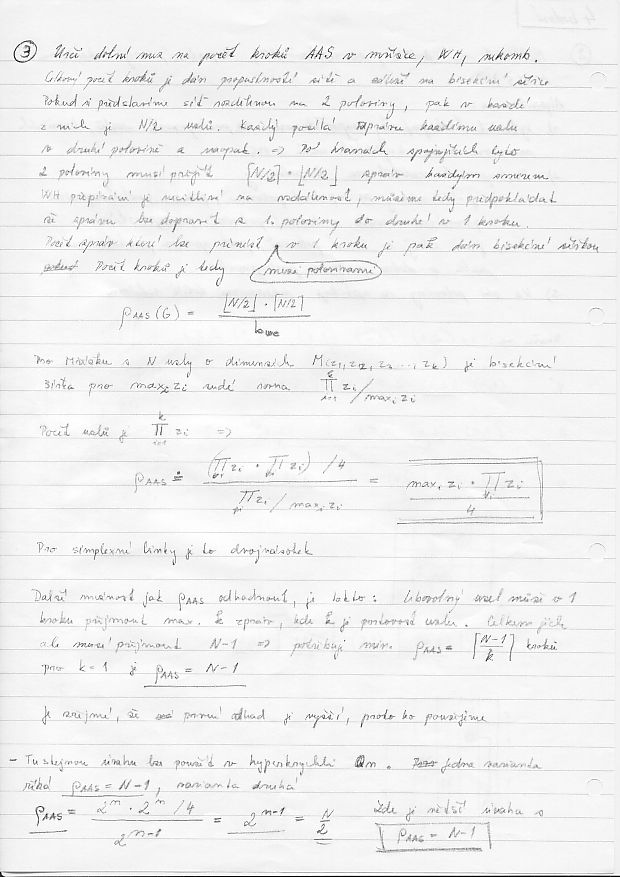 ③ Urči dolní mez na počet kroků AAS v mřížce, WH, nekomb.
Celkový počet kroků je dán propustností sítě a záleží na bisekční šířce
Pokud si představíme síť rozdělenou na 2 poloviny, pak v každé
z nich je N/2 uzlů. Každý posílá zprávu každému uzlu
v druhé polovině a naopak. => Po hranách spojujících tyto
2 poloviny musí přejít ⌈N/2⌉ · ⌊N/2⌋ zpráv každým směrem
WH přepínání je necitlivé na vzdálenost, můžeme tedy předpokládat
že zprávu lze dopravit z 1. poloviny do druhé v 1 kroku.
Počet zpráv které lze přenést v 1 kroku je pak dán bisekční šířkou
Počet kroků je tedy (mezi polovinami)
ρAAS(G) = ⌊N/2⌋ · ⌈N/2⌉ / bwe
Pro mřížku s N uzly o dimenzích M(z1, z2, z3 ..., zk) je bisekční
šířka pro maxi zi sudé rovna ∏ i=1 k zi / maxi zi
Počet uzlů je ∏ i=1 k zi =>
ρAAS ≐ (∏ zi · ∏ zi) / 4 / ∏ zi / maxi zi = maxi zi · ∏ zi / 4
Pro simplexní linky je to dvojnásobek
Další možnost jak ρAAS odhadnout, je takto: Libovolný uzel může v 1
kroku přijmout max. k zpráv, kde k je portovost uzlu. Celkem jich
ale musí přijmout N-1 => potřebuji min. ρAAS = ⌈N-1 / k⌉ kroků
pro k=1 je ρAAS = N-1
Je zřejmé, že první odhad je vyšší, proto ho použijeme
- Tu stejnou úvahu lze použít v hyperkrychli Qn. Jedna varianta
říká ρAAS = N-1, varianta druhá
ρAAS = 2^n · 2^n / 4 / 2^n-1 = 2^n-1 = N/2
Zde je větší úvaha s
ρAAS = N-1